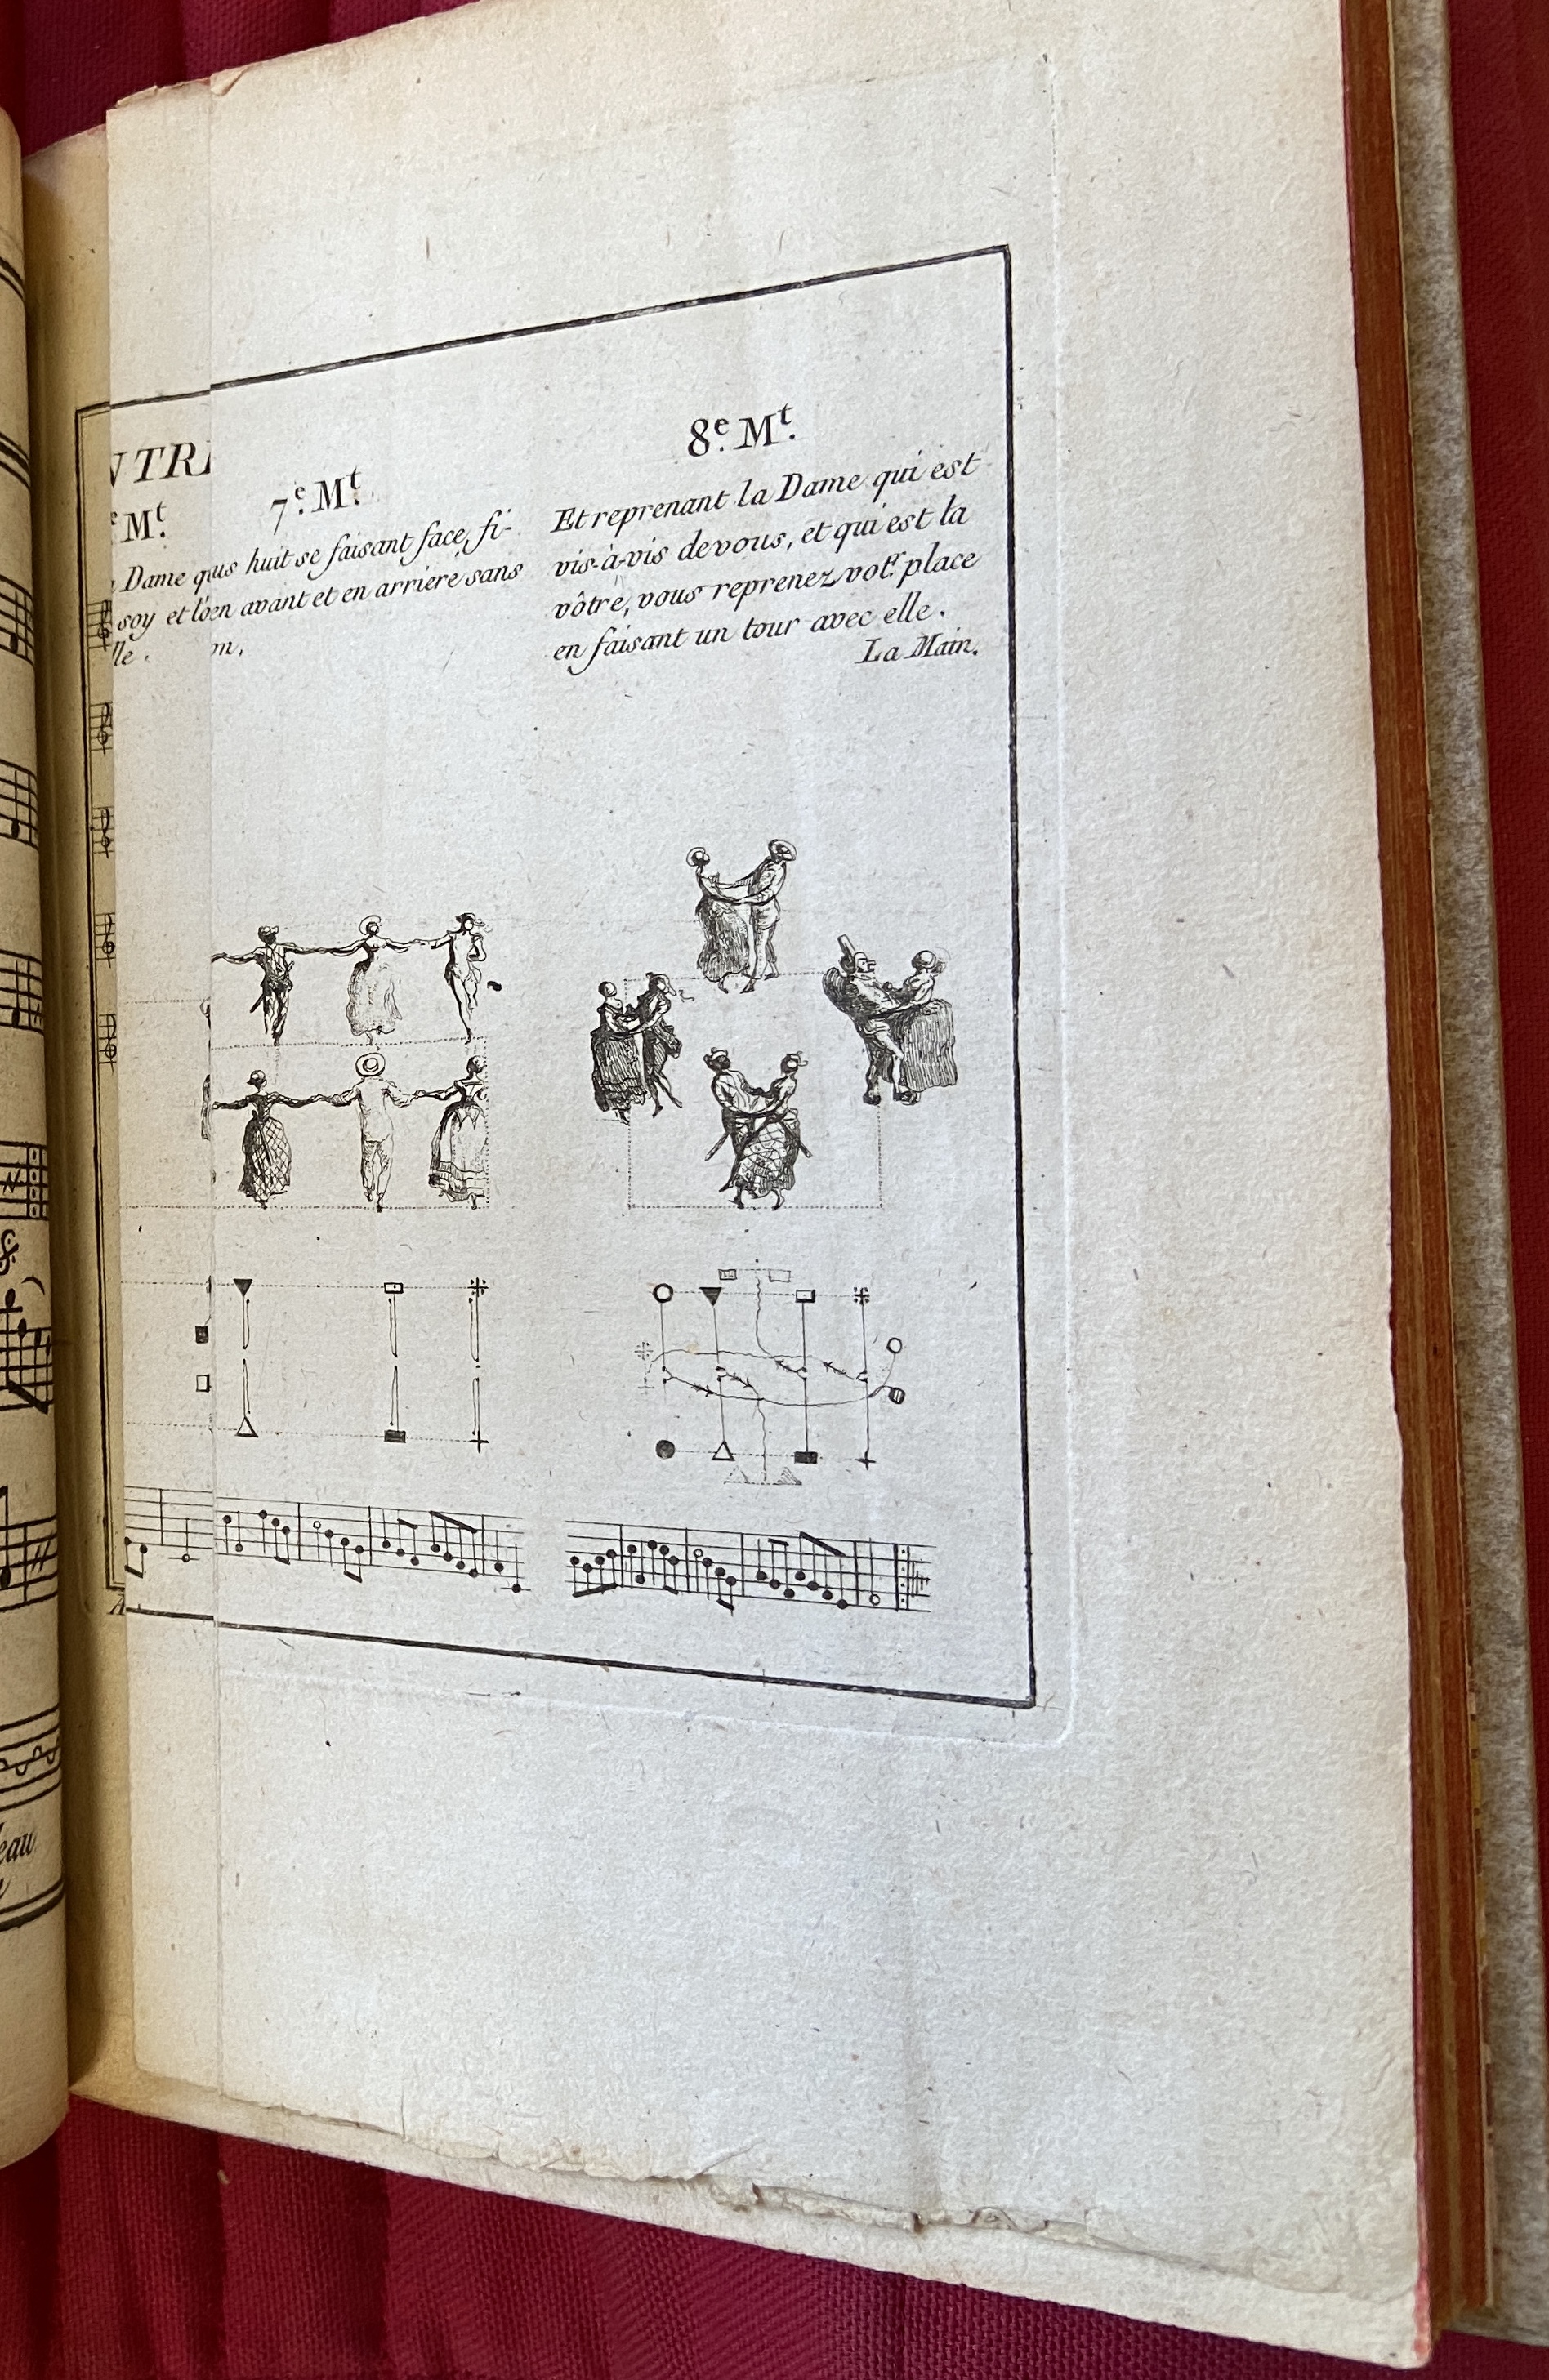 NTR
e Mt.
Dame q
soy et l'o
lle.
7.e Mt.
us huit se faisant face, fi-
en avant et en arriere sans
m.
8.e Mt.
Et reprenant la Dame qui est
vis-à-vis de vous, et qui est la
vôtre, vous reprenez vot.r place
en faisant un tour avec elle.
La Main.
eau